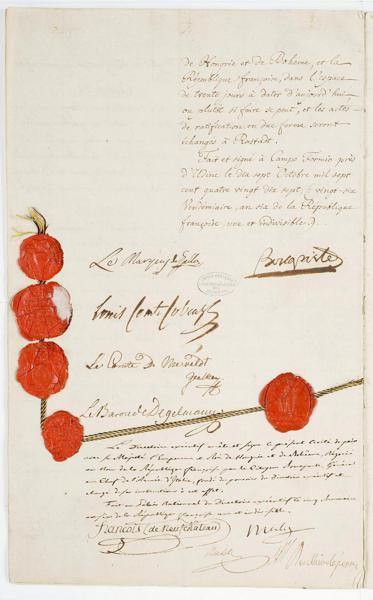 de Hongrie et de Boheme, et la
République française, dans l'espace
de trente jours à dater d'aujourd'hui
ou plutôt si faire se peut, et les actes
de ratification en due forme seront
échangés à Rastadt.
Fait et signé à Campo Formio près
d'Udine le dix sept Octobre mil sept
cent quatre vingt dix sept (vingt-six
Vendémiaire, an six de la République
françoise, une et indivisible).
Le Marquis de Gallo
Bonaparte
Louis Comte Cobenzl
Le Comte de Merveldt
Le Baron de Degelmann
Le Directoire exécutif arrête et signe le présent traité de paix
avec sa Majesté l'Empereur et Roi de Hongrie et de Bohême, négocié
au nom de la République française par le Citoyen Bonaparte, Général
en Chef de l'Armée d'Italie, fondé de pouvoirs du Directoire exécutif et
chargé de ses instructions à cet effet.
Fait au Palais National du Directoire exécutif le cinq Brumaire
an six de la République française une et indivisible.
François (de Neufchateau)